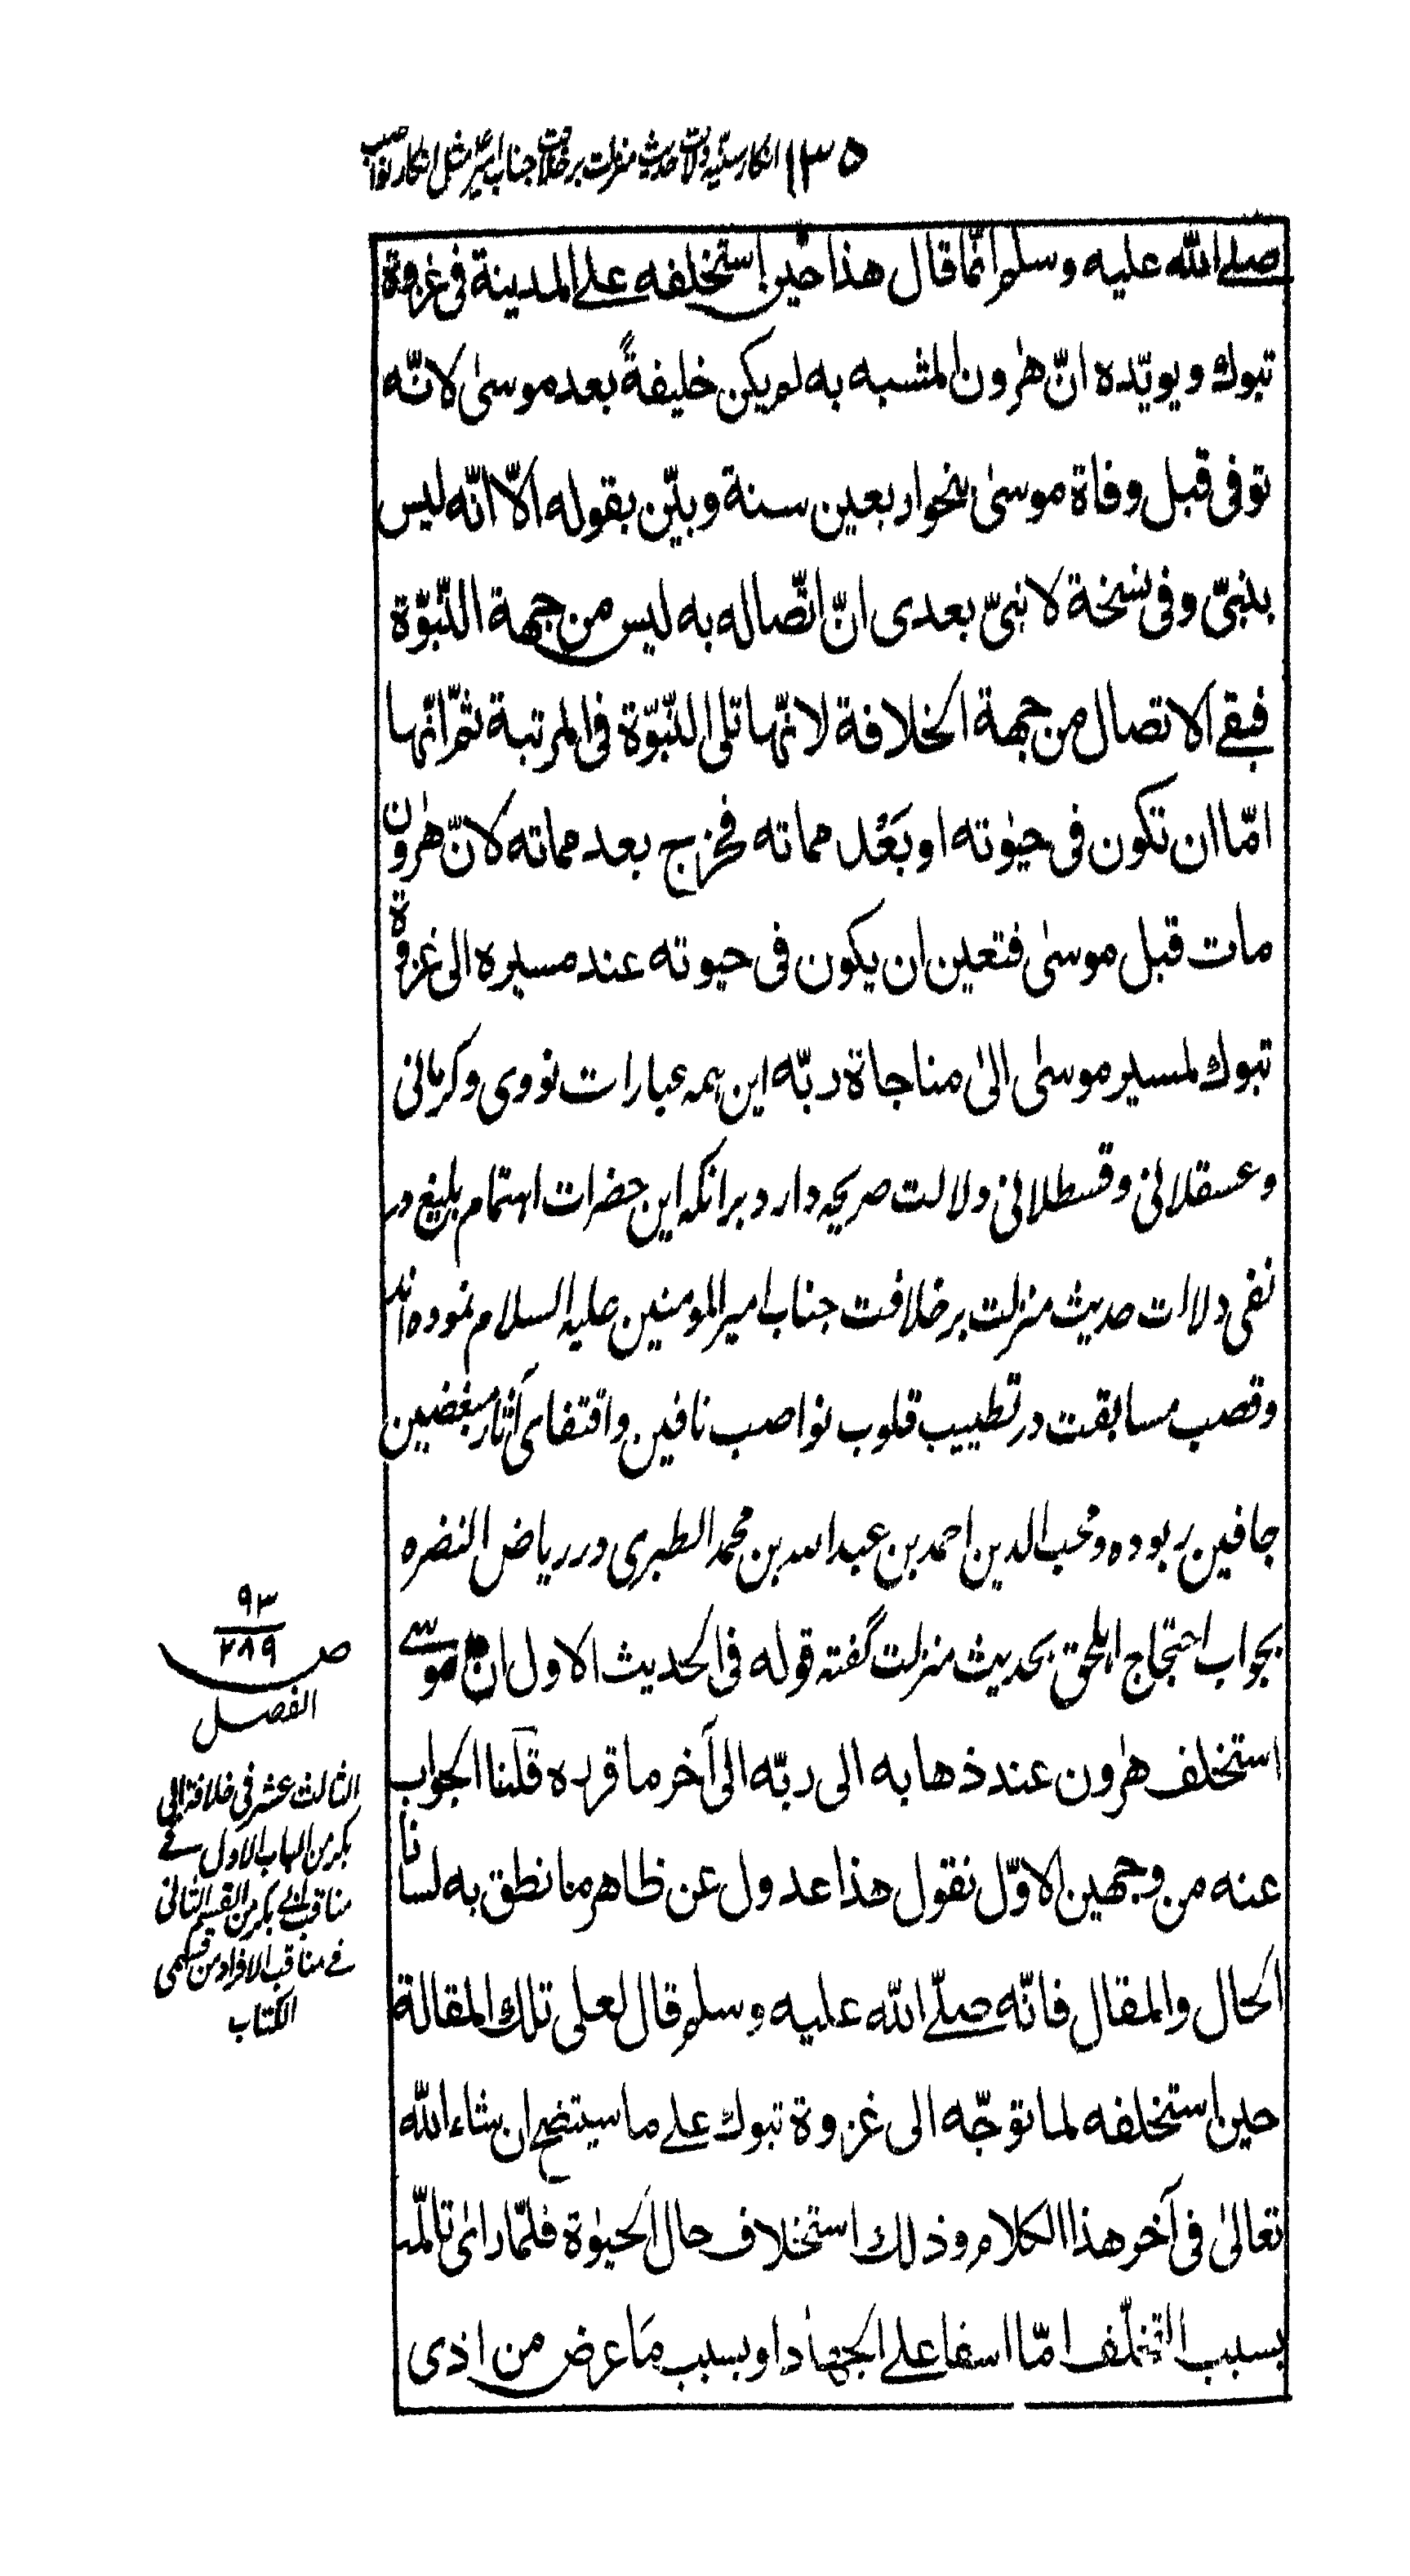 ۱۳۵ انکار سنیه دلالت حدیث منزلت بر خلافت جناب امیر ع مثل انکار نواصب
صلے الله علیه وسلم انّما قال هذا حین استخلفه علے المدینة فی غزوة
تبوك ویویّده انّ هٰرون المشبه به لم یکن خلیفةً بعد موسیٰ لانّه
توفی قبل وفاة موسیٰ بنحو اربعین سنة وبیّن بقوله الّا انّه لیس
بنبیّ وفی نسخة لا نبیّ بعدی انّ اتّصاله به لیس من جهة النّبوّة
فبقے الاتصال من جهة الخلافة لانّها تلی النّبوّة فی المرتبة ثمّ انّها
امّا ان تکون فی حیٰوته او بَعْد مماته فخرج بعد مماته لانّ هٰرون
مات قبل موسیٰ فتعین ان یکون فی حیوته عند مسیره الی غزوة
تبوك لمسیر موسیٰ الیٰ مناجاة ربّه این همه عبارات نووی وکرمانی
وعسقلانی وقسطلانی دلالت صریحه دارد برانکه این حضرات اهتمام بلیغ در
نفی دلالت حدیث منزلت بر خلافت جناب امیر المومنین علیه السلام نموده اند
وقصب مسابقت در تطییب قلوب نواصب نافین واقتفای آثار مبغضین
جافین ربوده ومحب الدین احمد بن عبد الله بن محمد الطبری در ریاض النضره
بجواب احتجاج اهلحق بحدیث منزلت گفته قوله فی الحدیث الاول ان موسے
استخلف هٰرون عند ذهابه الی ربّه الی آخر ما قرره قلنا الجواب
عنه من وجهین الاوّل نقول هذا عدول عن ظاهر ما نطق به لسانا
الحال والمقال فانّه صلّے الله علیه وسلم قال لعلی تلك المقالة
حین استخلفه لما توجّه الی غزوة تبوك علے ما سیتضح ان شاء الله
تعالیٰ فی آخر هذا الکلام وذلك استخلاف حال الحیٰوة فلمّا رای تالّمه
بسبب التخلّف امّا اسفا علے الجهاد او بسبب مَا عرض من اذی
۹۳
ص ۲۸۹
الفصل
الثالث عشر فی خلافة ابی
بکر من الباب الاول فے
مناقب ابی بکر من القسم الثانی
فے مناقب الافراد من قسمی
الکتاب